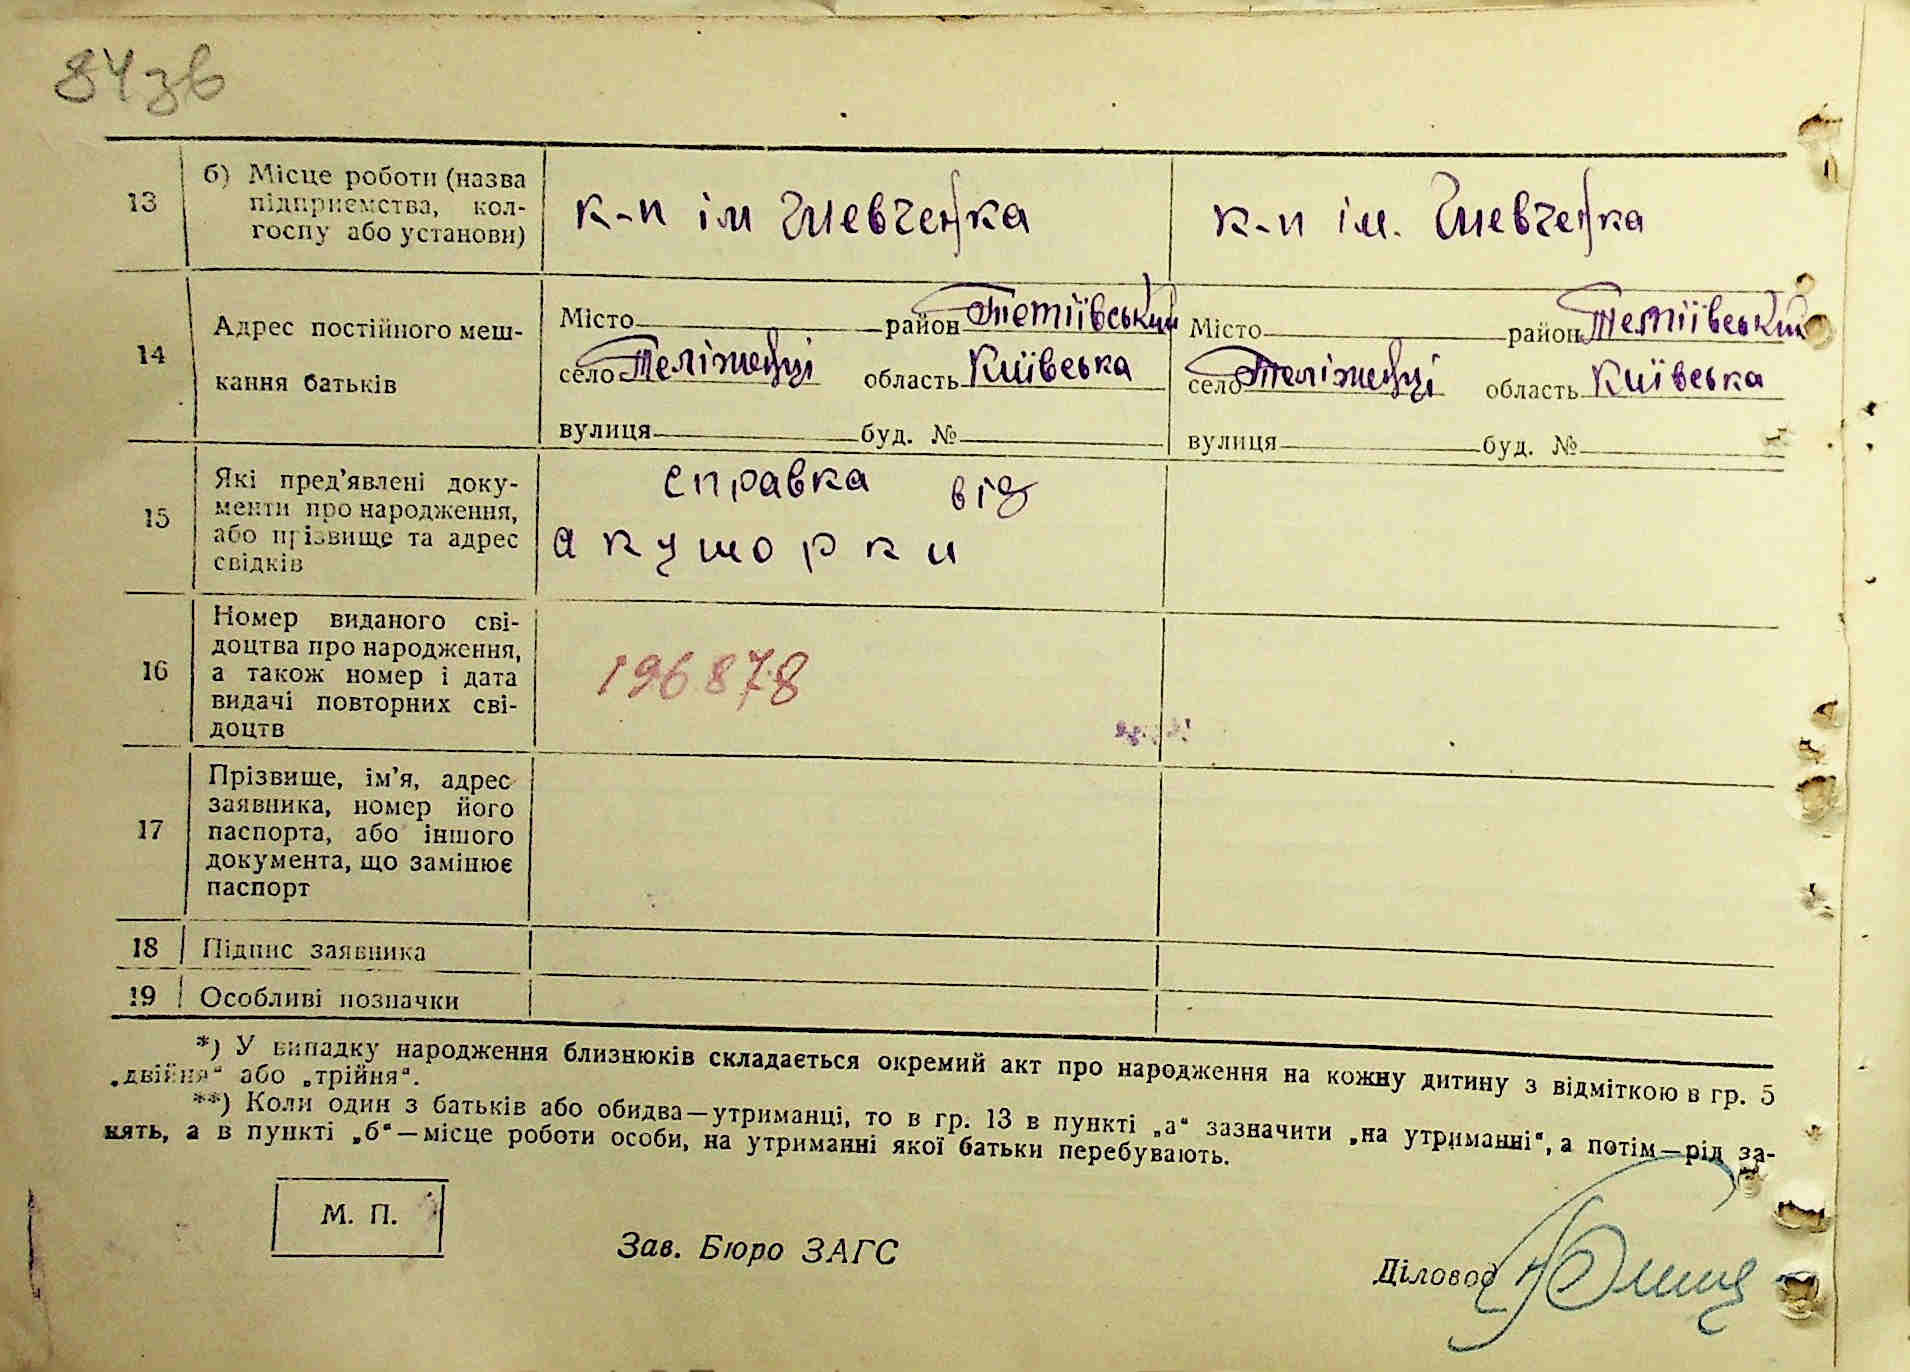 84зв
13 б) Місце роботи (назва підприємства, кол-госпу або установи) к-п ім Шевченка к-п ім. Шевченка
14 Адрес постійного меш-кання батьків
Місто район Тетіївський Місто район Тетіївський
село Теліженці область Київська село Теліженці область Київська
вулиця буд. № вулиця буд. №
15 Які пред'явлені доку-
менти про народження,
або прізвище та адрес
свідків
справка від
акушорки
16 Номер виданого сві-
доцтва про народження,
а також номер і дата
видачі повторних сві-
доцтв
196878
17 Прізвище, ім'я, адрес
заявника, номер його
паспорта, або іншого
документа, що замінює
паспорт
18 Підпис заявника
19 Особливі позначки
*) У випадку народження близнюків складається окремий акт про народження на кожну дитину з відміткою в гр. 5
„двійня“ або „трійня“.
**) Коли один з батьків або обидва—утриманці, то в гр. 13 в пункті „а“ зазначити „на утриманні“, а потім—рід за-
нять, а в пункті „б“—місце роботи особи, на утриманні якої батьки перебувають.
М. П.
Зав. Бюро ЗАГС
Діловод